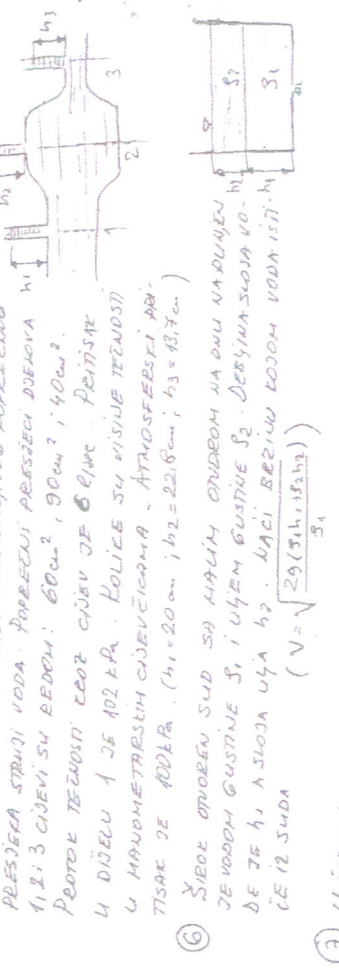 PRESJEKA STRUJI VODA. POPREČNI PRESJECI DJELOVA
1, 2 i 3 CIJEVI SU REDOM: 60cm², 90cm² i 40cm².
PROTOK TEČNOSTI KROZ CIJEV JE 6 l/min. PRITISAK
U DIJELU 1 JE 102 kPa. KOLIKE SU VISINE TEČNOSTI
U MANOMETARSKIM CIJEVČICAMA. ATMOSFERSKI PRI-
TISAK JE 100kPa. (h1=20 cm; h2=22,8cm; h3=13,7cm)
h1
h2
h3
1
2
3
6 ŠIROK OTVOREN SUD SA MALIM OTVOROM NA DNU NAPUNJEN
JE VODOM GUSTINE ρ1 I ULJEM GUSTINE ρ2. DEBLJINA SLOJA VO-
DE JE h1 A SLOJA ULJA h2. NAĆI BRZINU KOJOM VODA ISTI-
ČE IZ SUDA
(V = √2g(ρ1h1+ρ2h2)/ρ1)
h2
h1
ρ2
ρ1
7